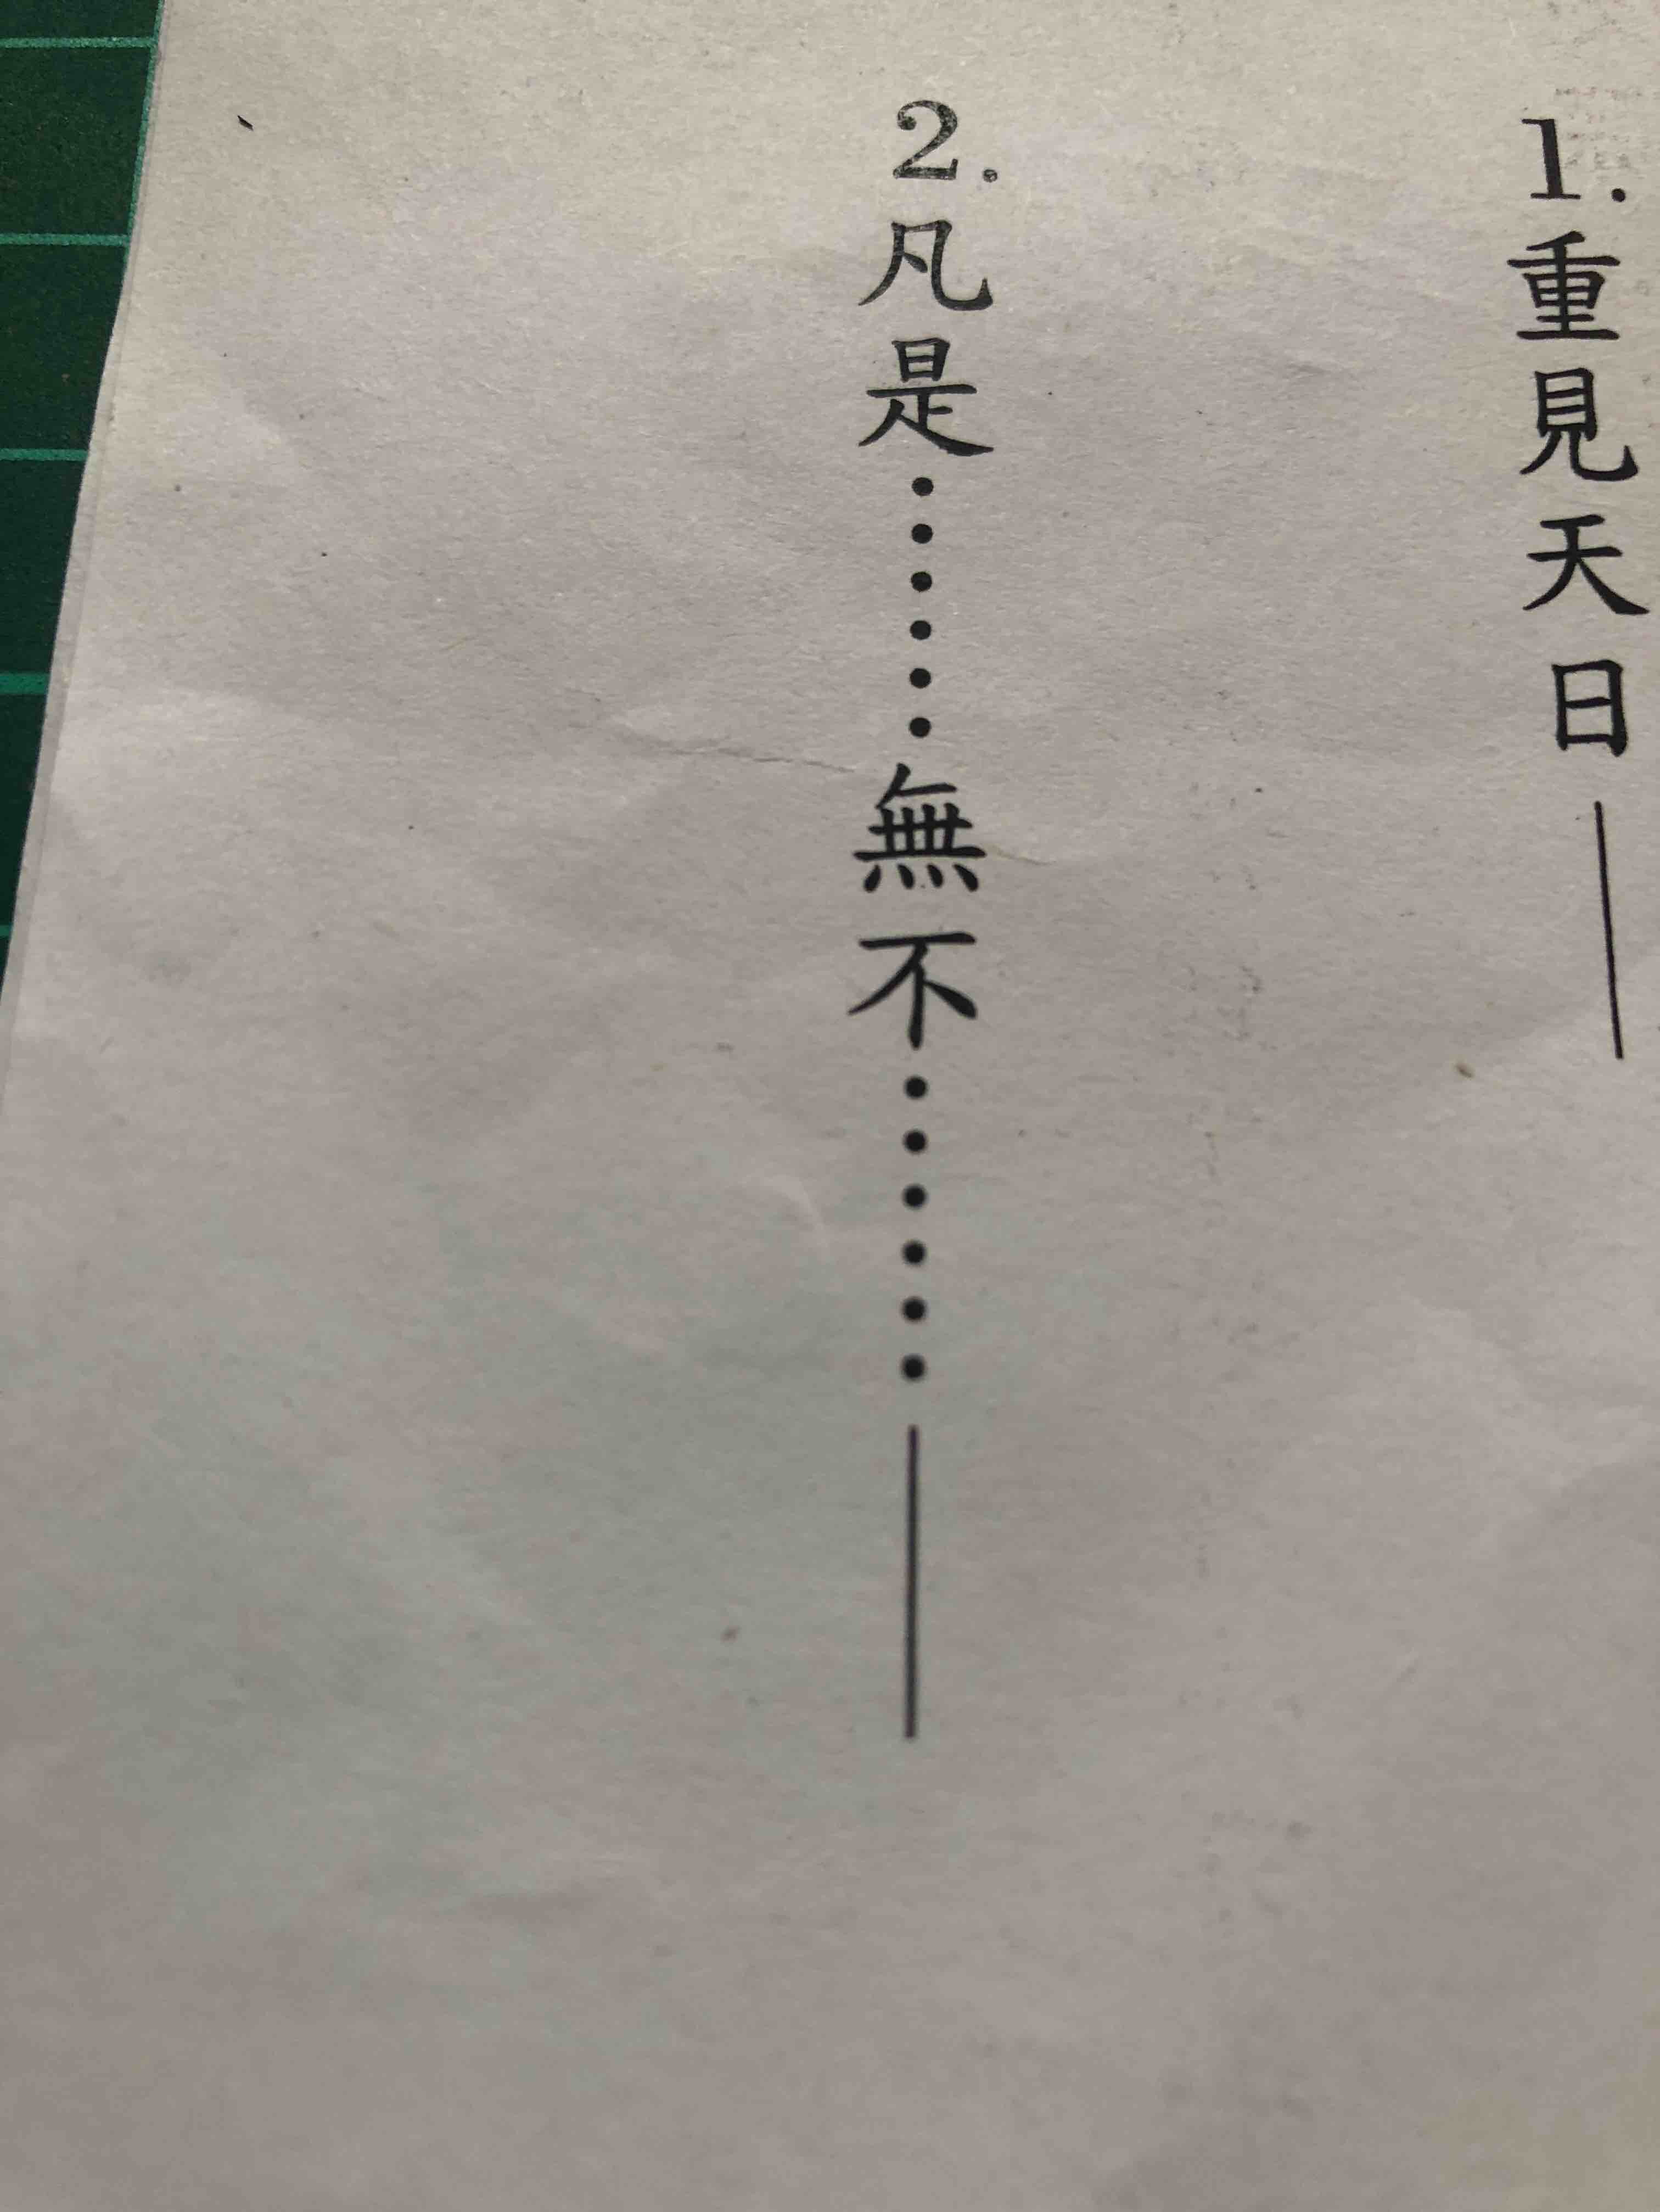 1.重見天日——
2.凡是……無不……——